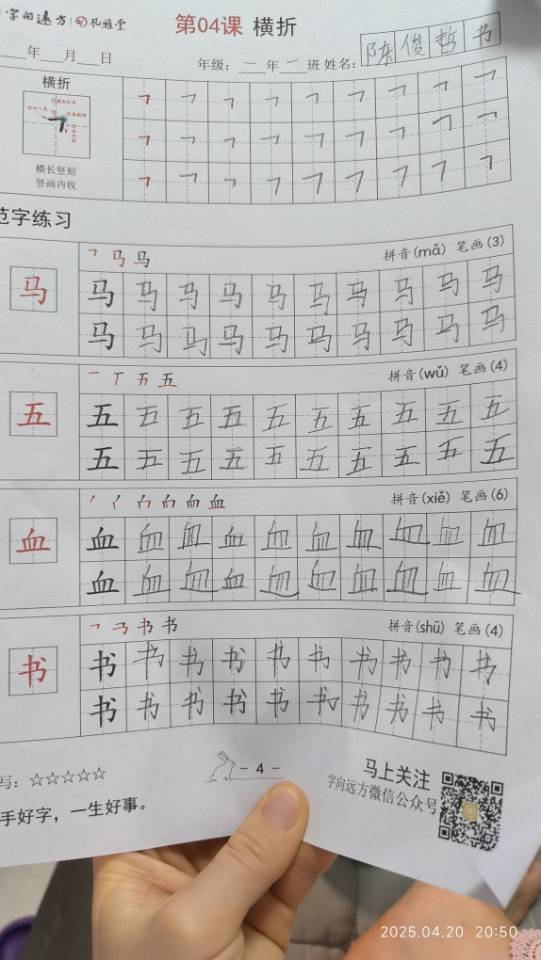 字向远方 孔雅堂
第04课 横折
年 月 日
年级：一 年 一 班 姓名：陈俊哲书
横折
横长竖短
竖画内收
范字练习
马
𠃍 马 马
拼音(mǎ) 笔画(3)
马 马 马 马 马 马 马 马 马 马
马 马 马 马 马 马 马 马 马 马
五
一 丅 五 五
拼音(wǔ) 笔画(4)
五 五 五 五 五 五 五 五 五 五
五 五 五 五 五 五 五 五 五 五
血
拼音(xiě) 笔画(6)
血 血 血 血 血 血 血 血 血 血
血 血 血 血 血 血 血 血 血 血
书
拼音(shū) 笔画(4)
书 书 书 书 书 书 书 书 书 书
书 书 书 书 书 书 书 书 书 书
写：☆☆☆☆☆
- 4 -
马上关注
字向远方微信公众号
手好字，一生好事。
2025.04.20 20:50